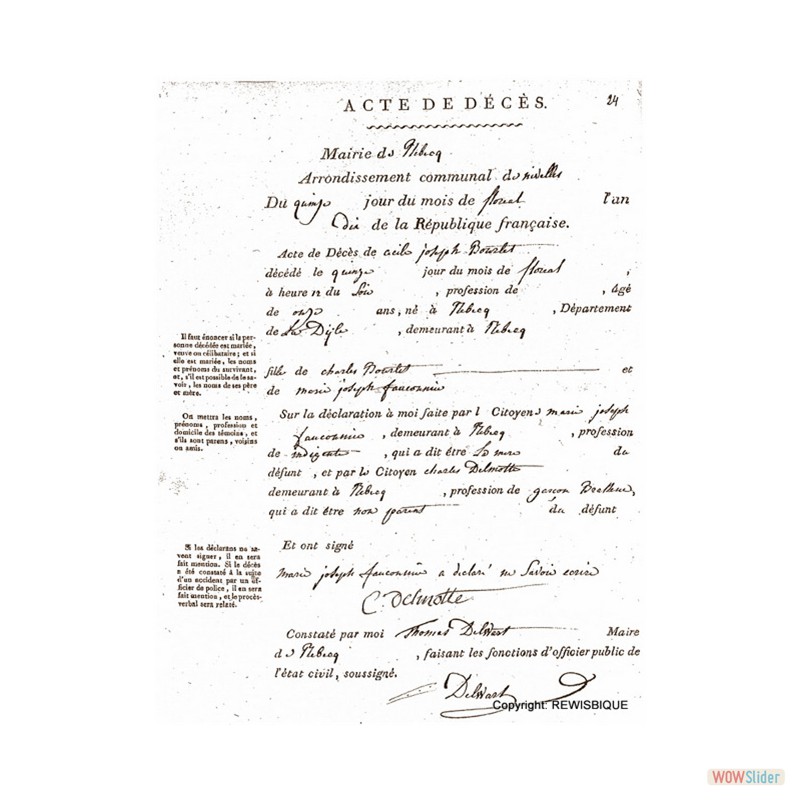 ACTE DE DÉCÈS. 24
Mairie de Rebecq
Arrondissement communal de nivelles
Du quinze jour du mois de floreal l'an
dix de la République française.
Acte de Décès de joseph Bourlet
décédé le quinze jour du mois de floreal ,
à heure 12 du Soir , profession de , âgé
de onze ans, né à Rebecq , Département
de La Dijle , demeurant à Rebecq
Il faut énoncer si la per-
sonne décédée est mariée,
veuve ou célibataire ; et si
elle est mariée, les noms
et prénoms du survivant,
et, s'il est possible de le sa-
voir, les noms de ses père
et mère.
fille de charles Bourlet et
de marie joseph fauconnier
On mettra les noms,
prénoms, profession et
domicile des témoins, et
s'ils sont parens, voisins
ou amis.
Sur la déclaration à moi faite par l Citoyene marie joseph
fauconnier , demeurant à Rebecq , profession
de indigente , qui a dit être La mere du
défunt , et par le Citoyen charles Delmotte
demeurant à Rebecq , profession de garçon
qui a dit être non parent du défunt
Si les déclarans ne sa-
vent signer, il en sera
fait mention. Si le décès
a été constaté à la suite
d'un accident par un of-
ficier de police, il en sera
fait mention, et le procès-
verbal sera relaté.
Et ont signé
marie joseph fauconnier a declaré ne Savoir ecrire
C. Delmotte
Constaté par moi Thomas Delwart Maire
de Rebecq , faisant les fonctions d'officier public de
l'état civil, soussigné.
Delwart
Copyright: REWISBIQUE
WOWSlider